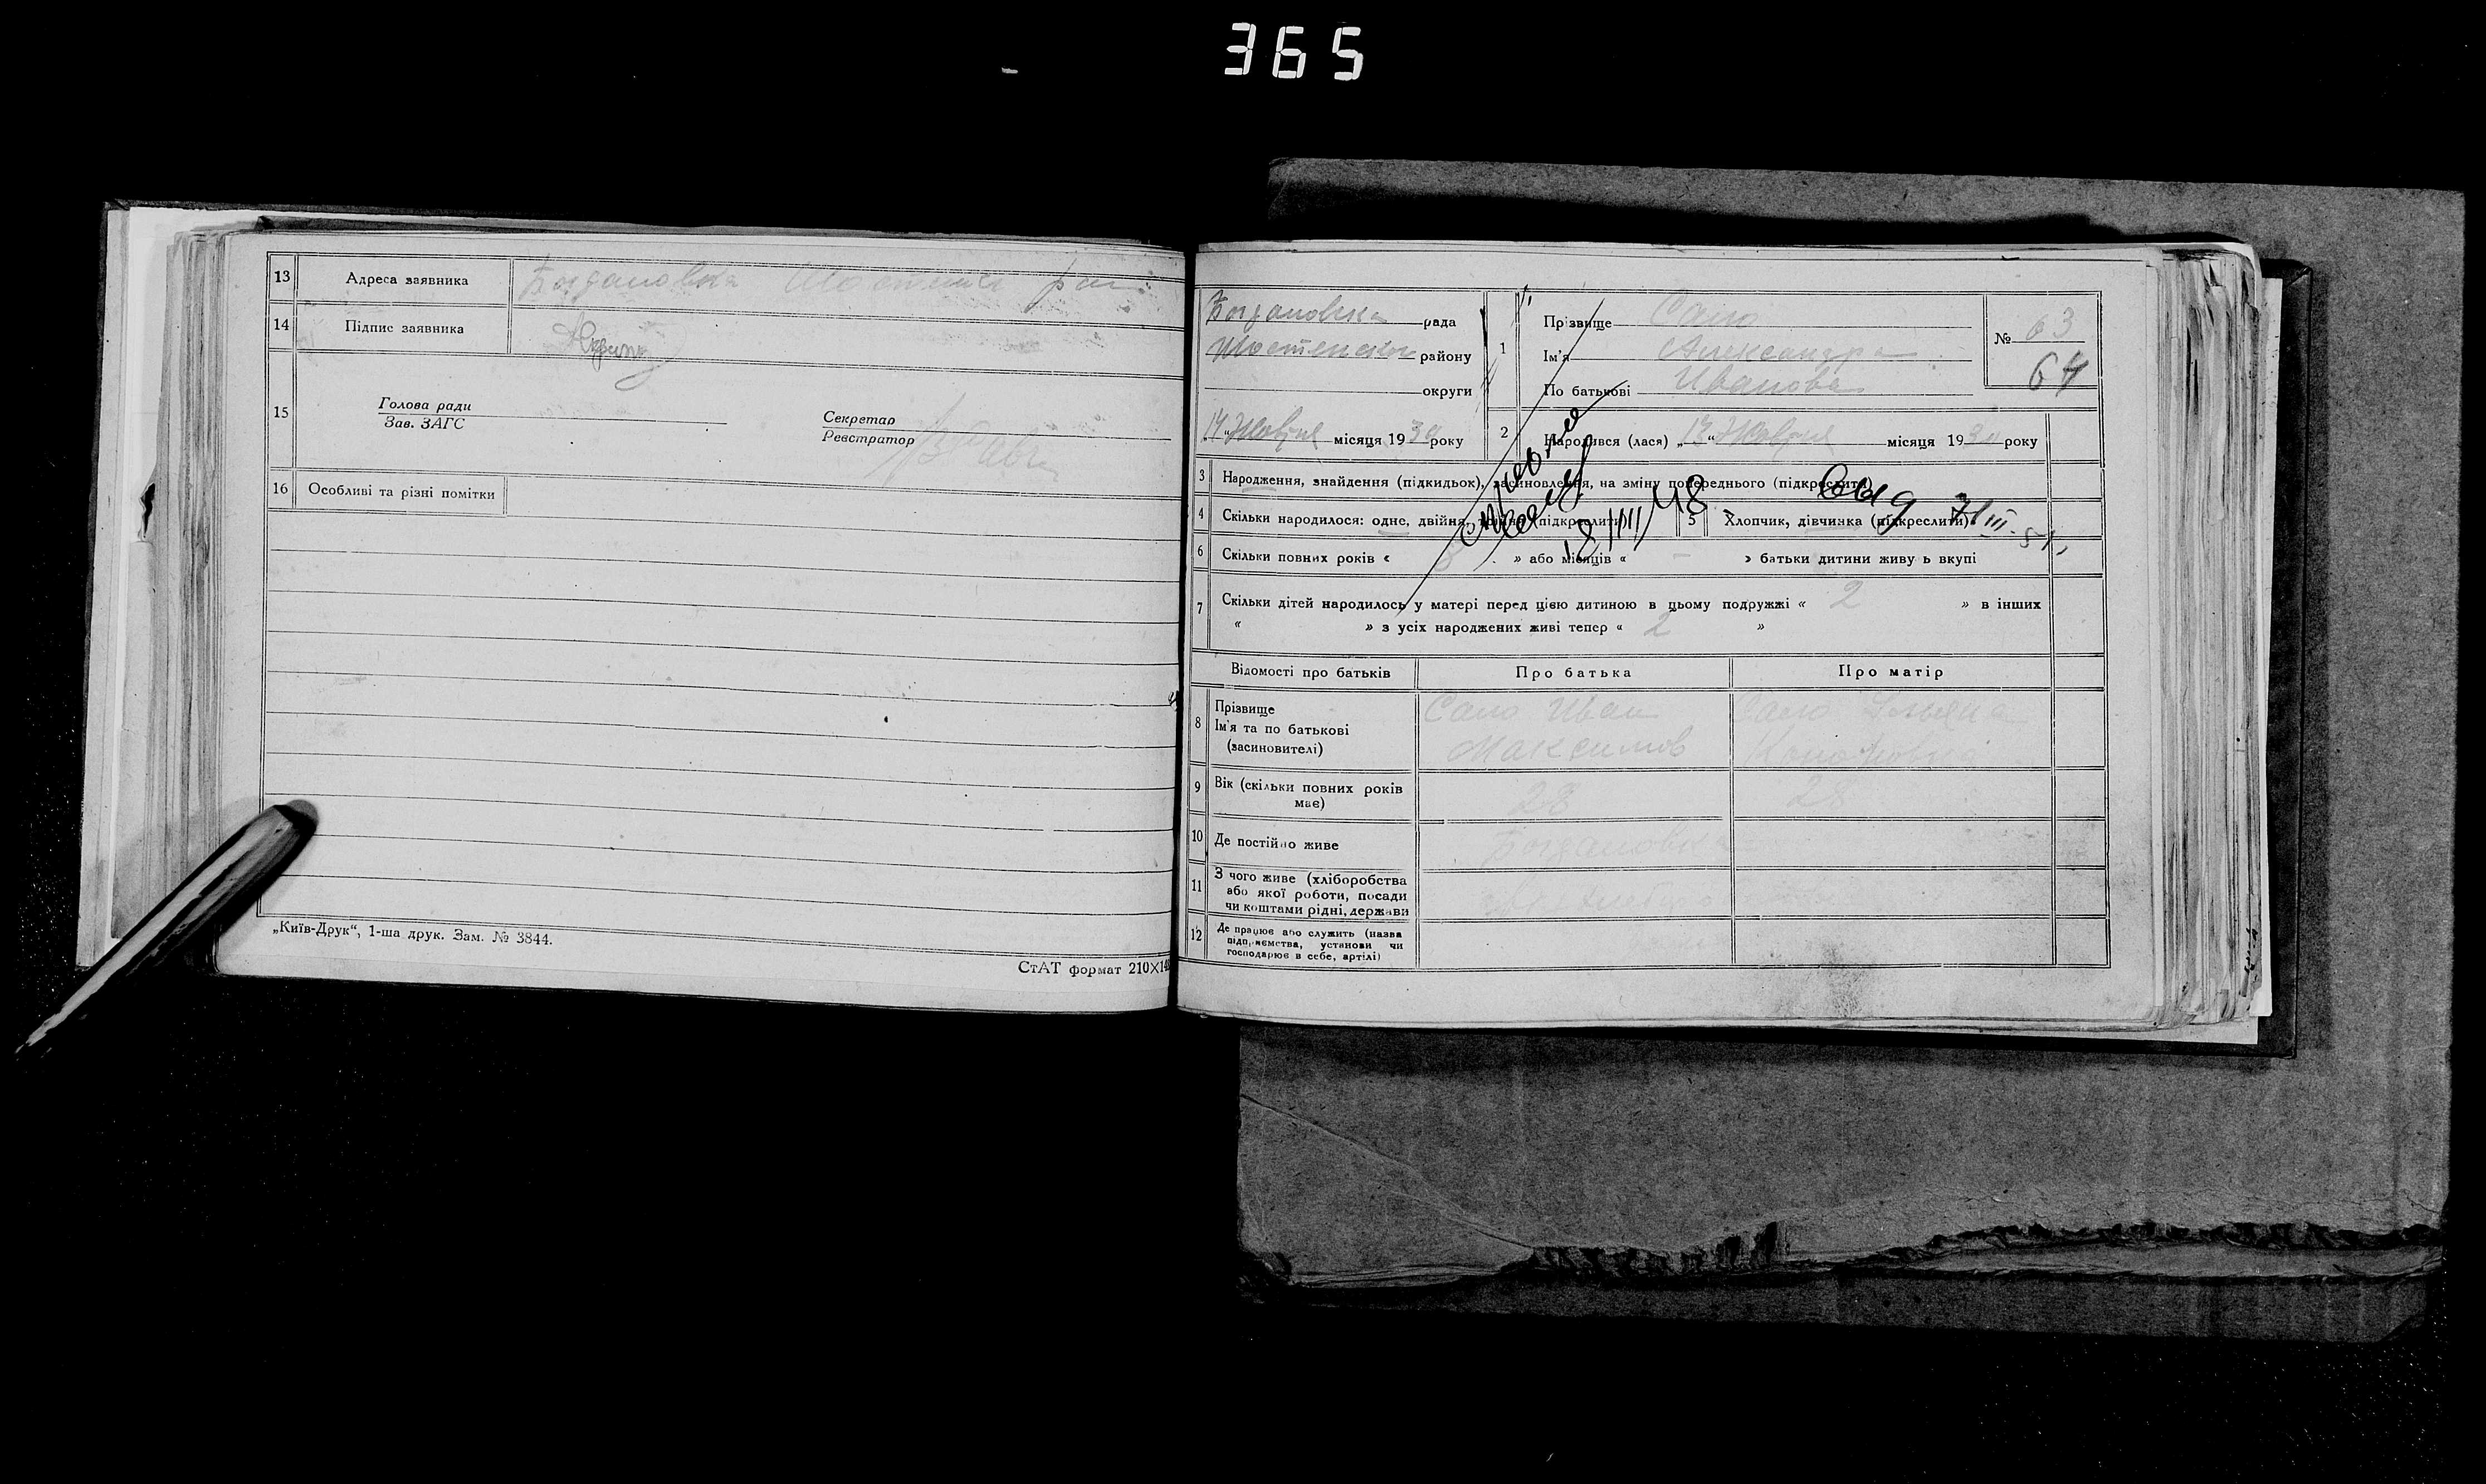 365
13 Адреса заявника Богдановка
14 Підпис заявника
15 Голова ради
Зав. ЗАГС
Секретар
Реєстратор
16 Особливі та різні помітки
„Київ-Друк“, 1-ша друк. Зам. № 3844.
СтАТ формат 210X14
Богдановка рада
району
округи
14 Жовтня місяця 1930 року
1 Прізвище Сало
Ім'я Александра
По батькові Иванова
№ 63
64
2 Народився (лася) „ “ Жовтня місяця 193 року
3 Народження, знайдення (підкидьок), засиновлення, на зміну попереднього (підкреслити)
4 Скільки народилося: одне, двійня, трійня (підкреслити)
5 Хлопчик, дівчинка (підкреслити)
18/III 48
6 Скільки повних років « » або місяців « — » батьки дитини живуть вкупі
7 Скільки дітей народилось у матері перед цією дитиною в цьому подружжі « 2 » в інших
« » з усіх народжених живі тепер « 2 »
Відомості про батьків Про батька Про матір
8 Прізвище
Ім'я та по батькові
(засиновителі)
Сало Иван
Максимов
Сало
9 Вік (скільки повних років
має)
28 28
10 Де постійно живе Богдановка
11 З чого живе (хліборобства
або якої роботи, посади
чи коштами рідні, держави
12 Де працює або служить (назва
підприємства, установи чи
господарює в себе, артілі)